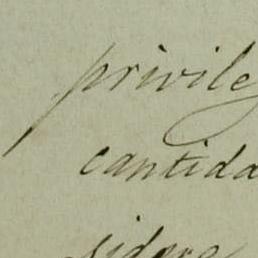 privile
cantida
sidera